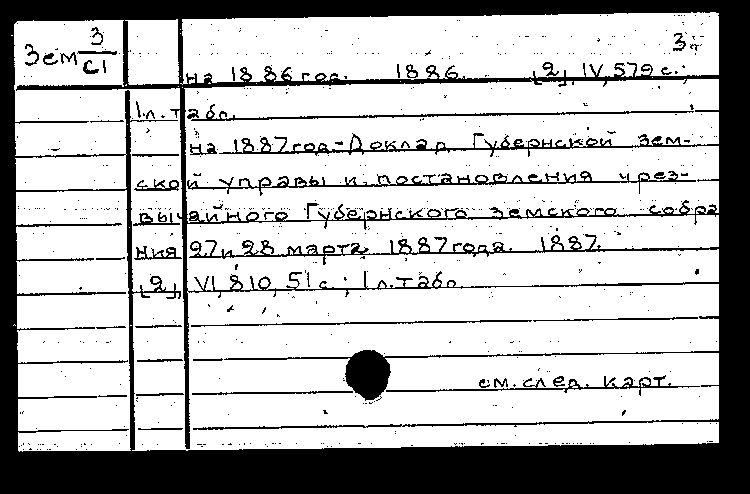 Зем 3/с1
3.
на 1886 год. 1886. [2], IV, 579 с.;
1 л. табл.
на 1887 год-Доклад Губернской зем-
ской управы и постановления чрез-
вычайного Губернского земского собра
ния 27 и 28 марта 1887 года. 1887.
[2], VI, 810, 51 с.; 1 л. табл.
см. след. карт.